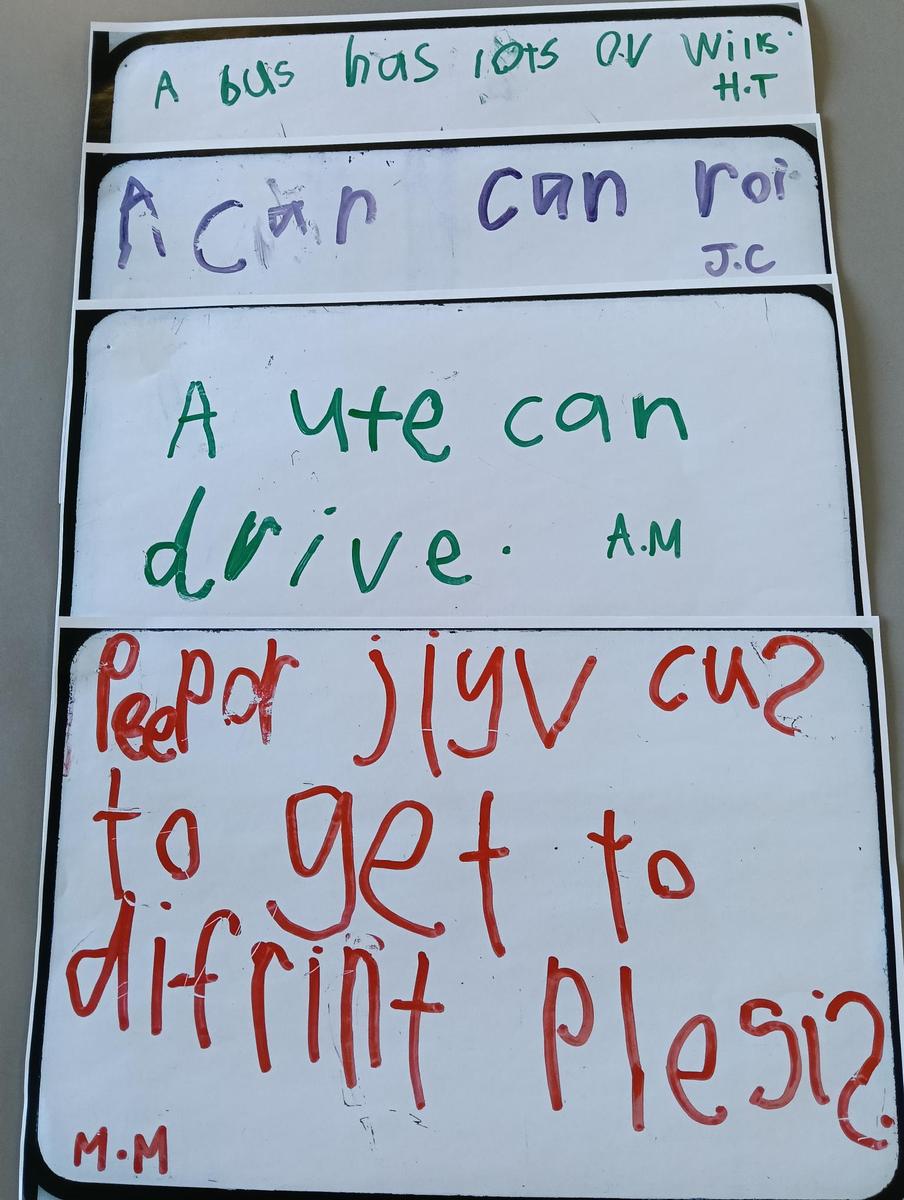 A bus has lots ov wills.
H.T
A can can roi
J.C
A ute can
drive.
A.M
Peepor jiyv cus
to get to
difrint plesis.
M.M